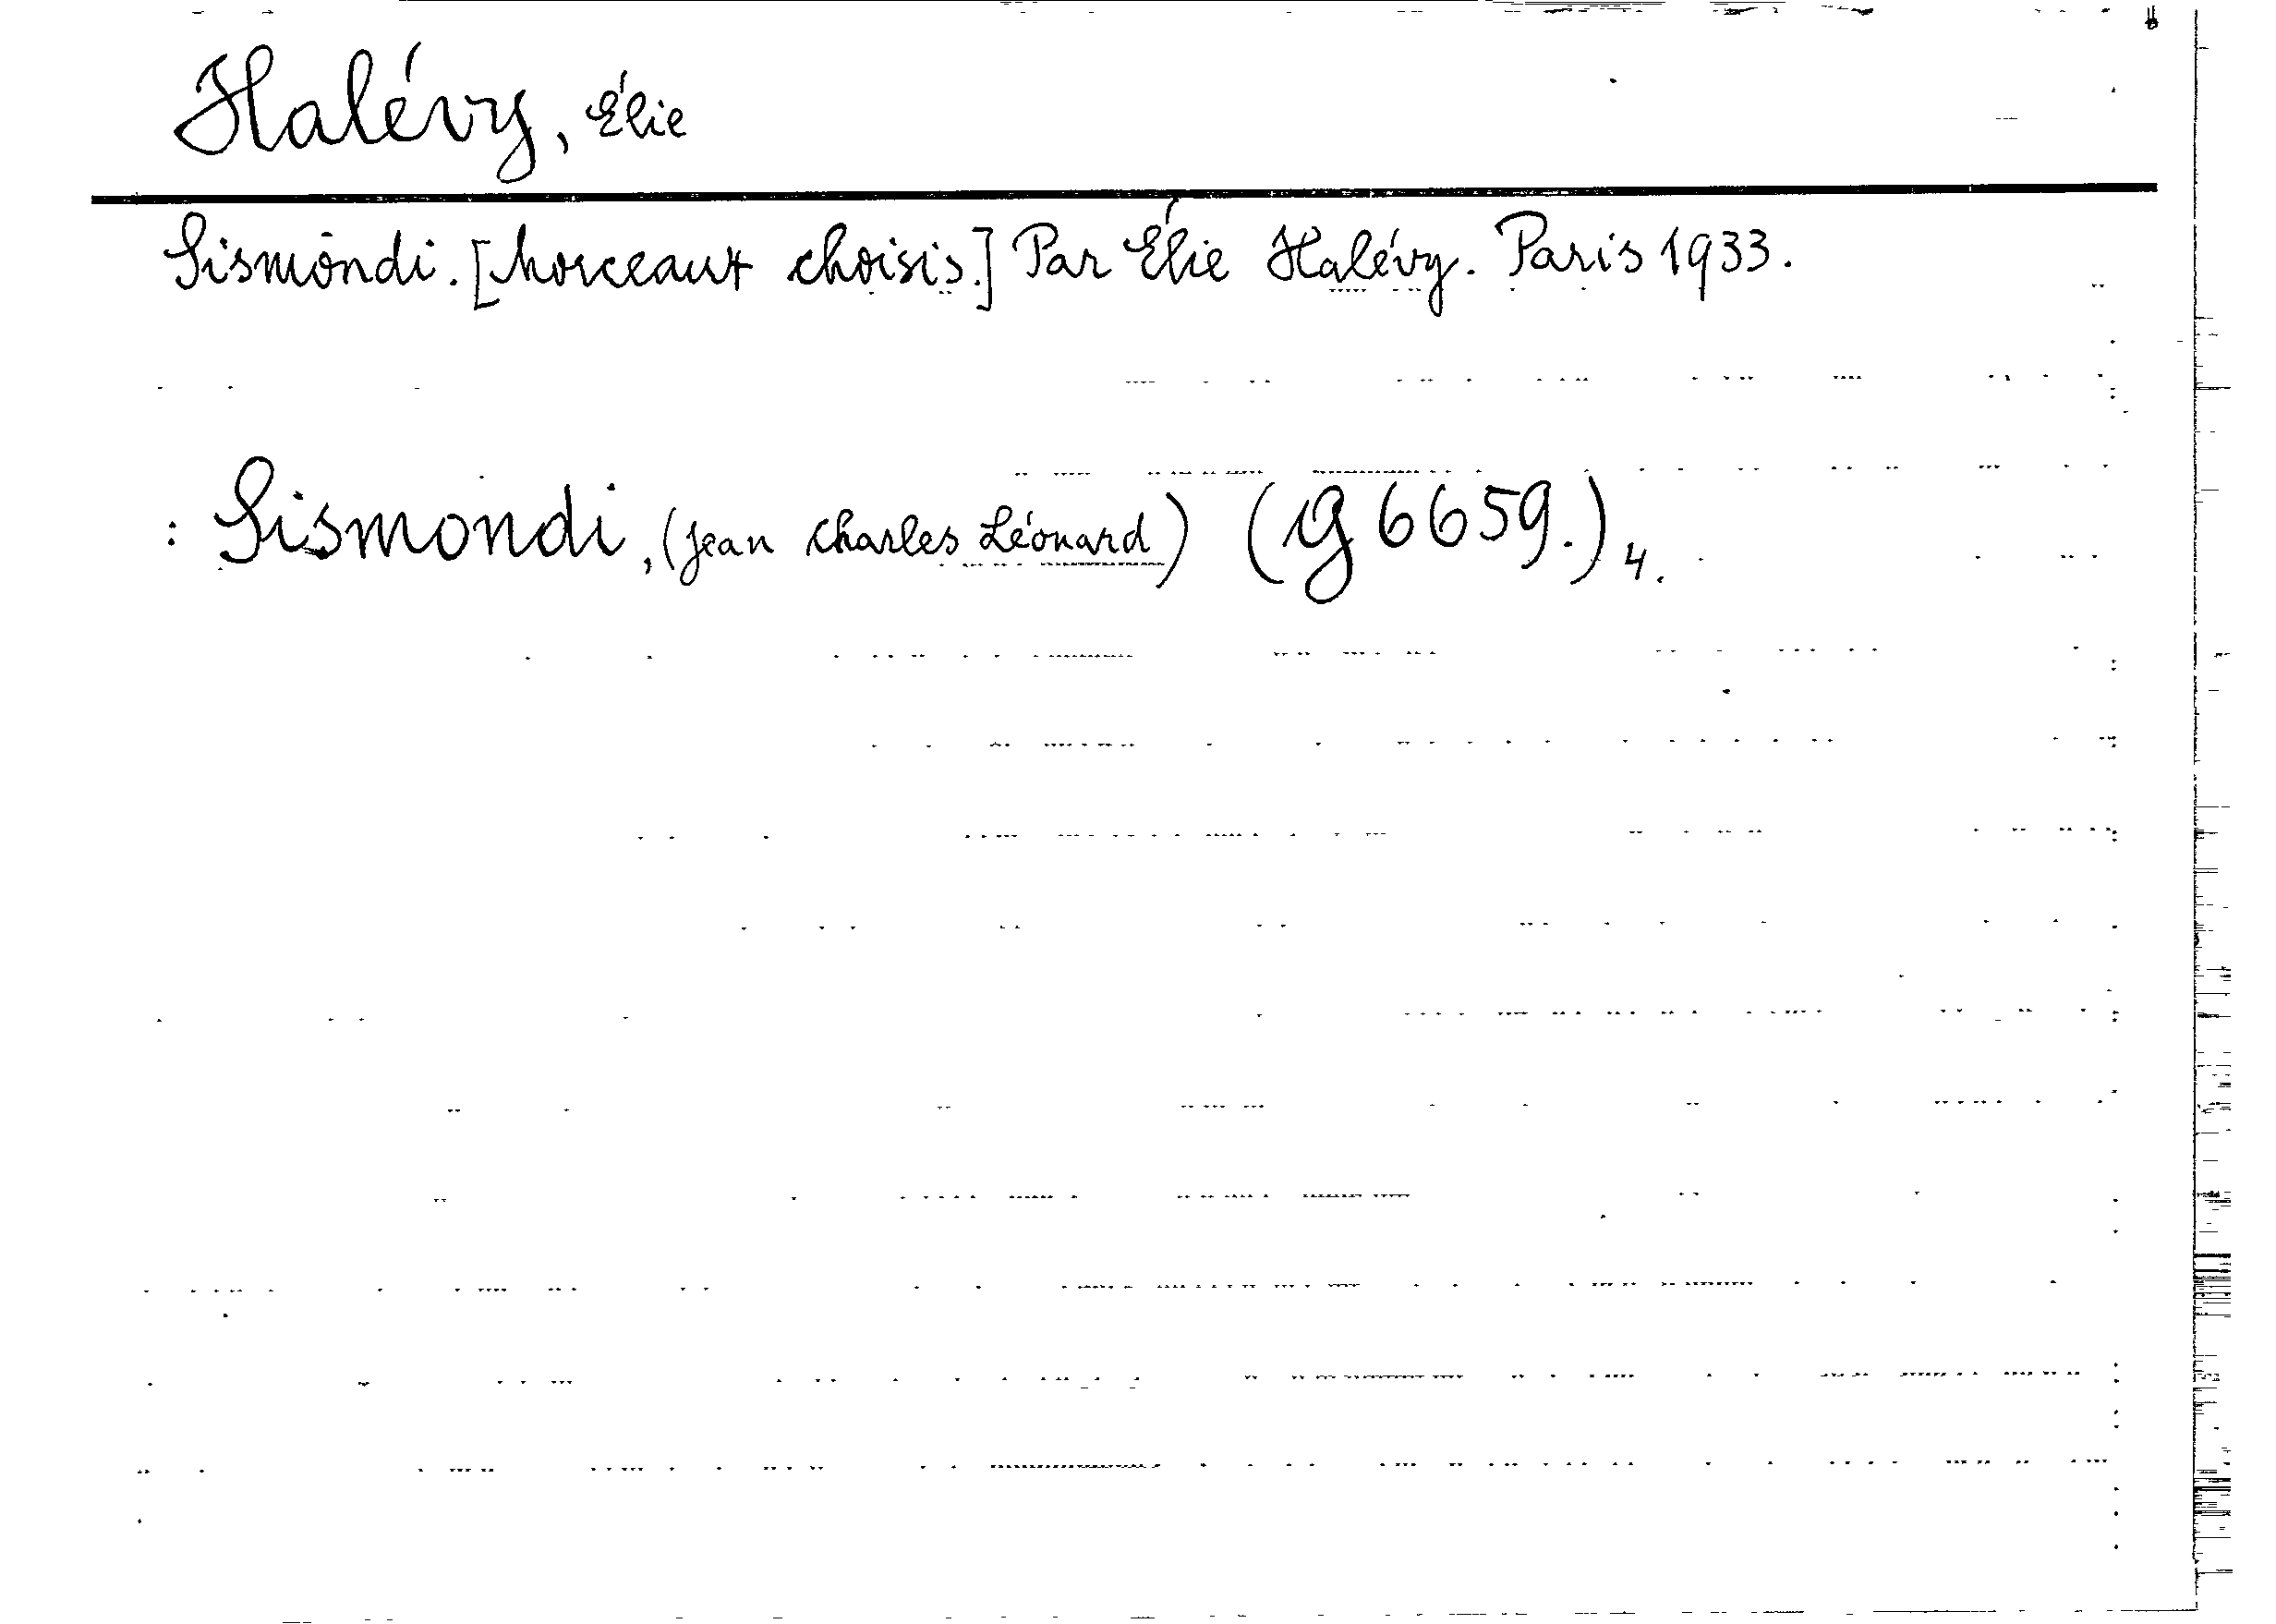 Halévy, Élie
Sismondi. [Morceaux choisis.] Par Élie Halévy. Paris 1933.
: Sismondi, (Jean Charles Léonard) (G 6659.) 4.